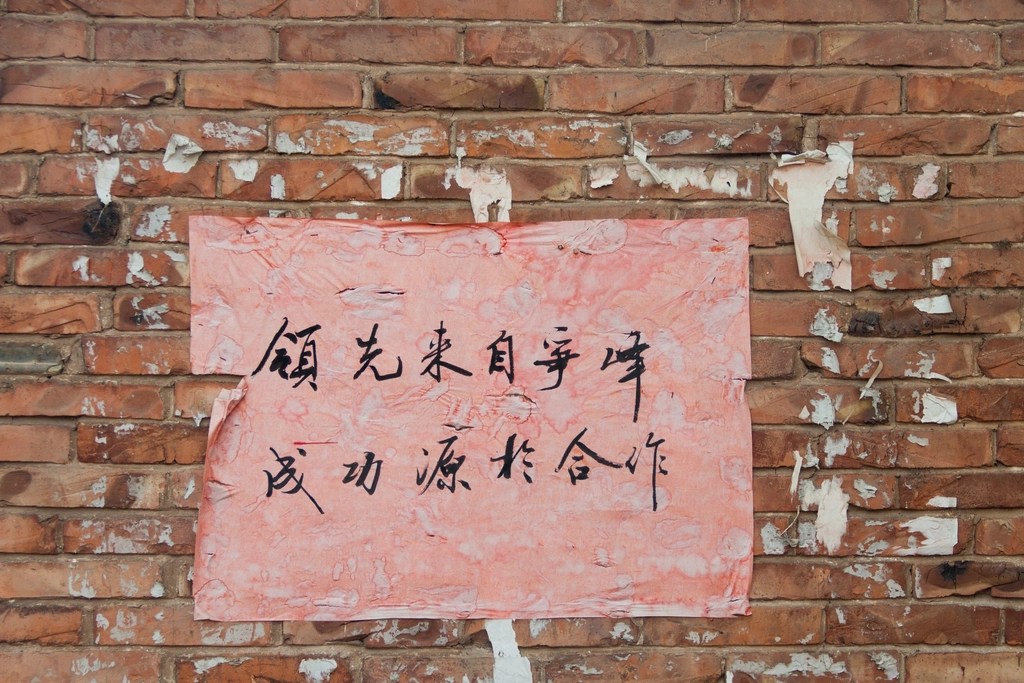 領先来自爭峰
成功源於合作